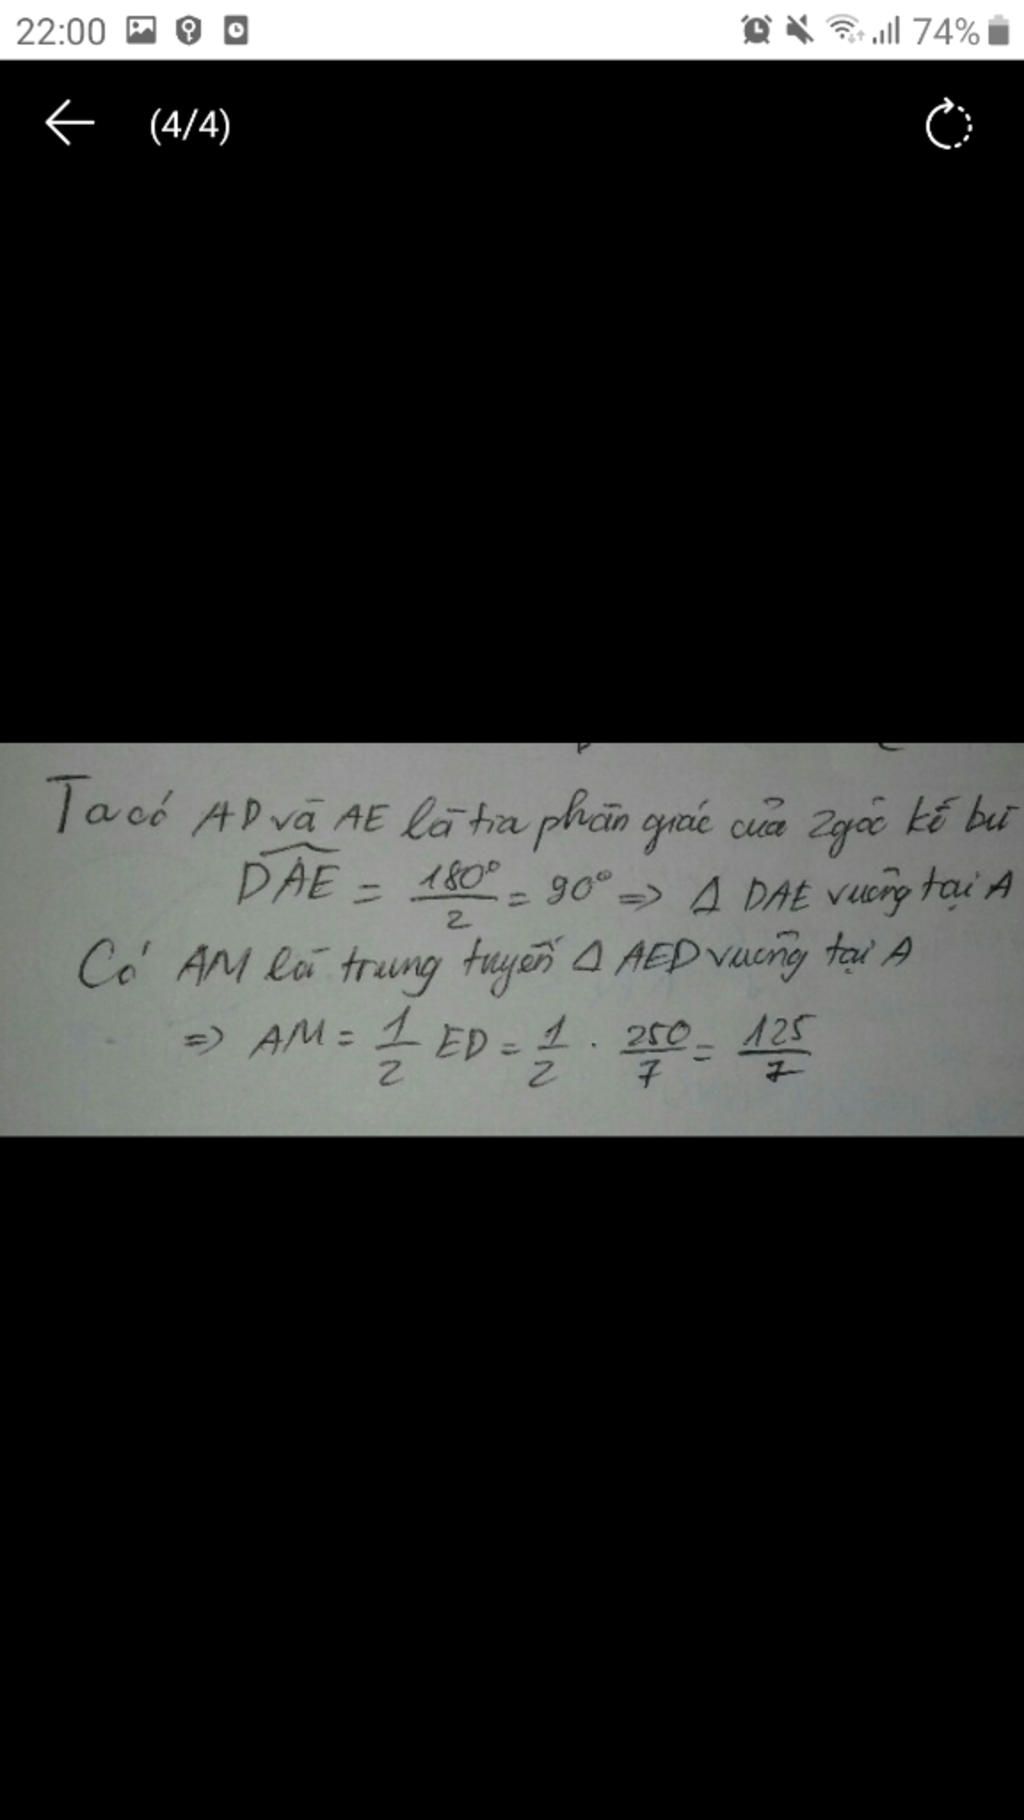 22:00 74%
(4/4)
Ta có AD và AE là tia phân giác của 2 góc kề bù
DAE = 180°/2 = 90° => Δ DAE vuông tại A
Có AM là trung tuyến Δ AED vuông tại A
=> AM = 1/2 ED = 1/2 . 250/7 = 125/7